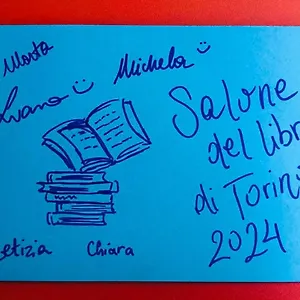 Marta
Luana
Michela
Salone
del libr
di Torin
2024
etizia
Chiara